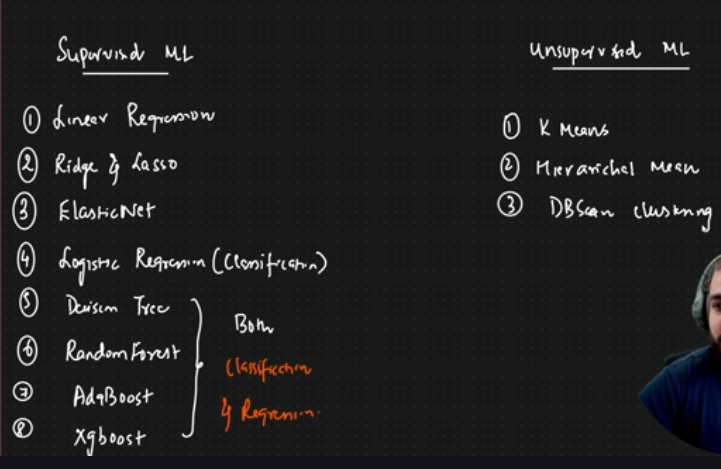 Supervised ML
① Linear Regression
② Ridge & Lasso
③ ElasticNet
④ Logistic Regression (Classification)
⑤ Decision Tree
⑥ RandomForest
⑦ AdaBoost
⑧ Xgboost
Both
Classification
& Regression.
Unsupervised ML
① K Means
② Hierarichal Mean
③ DBScan clustering